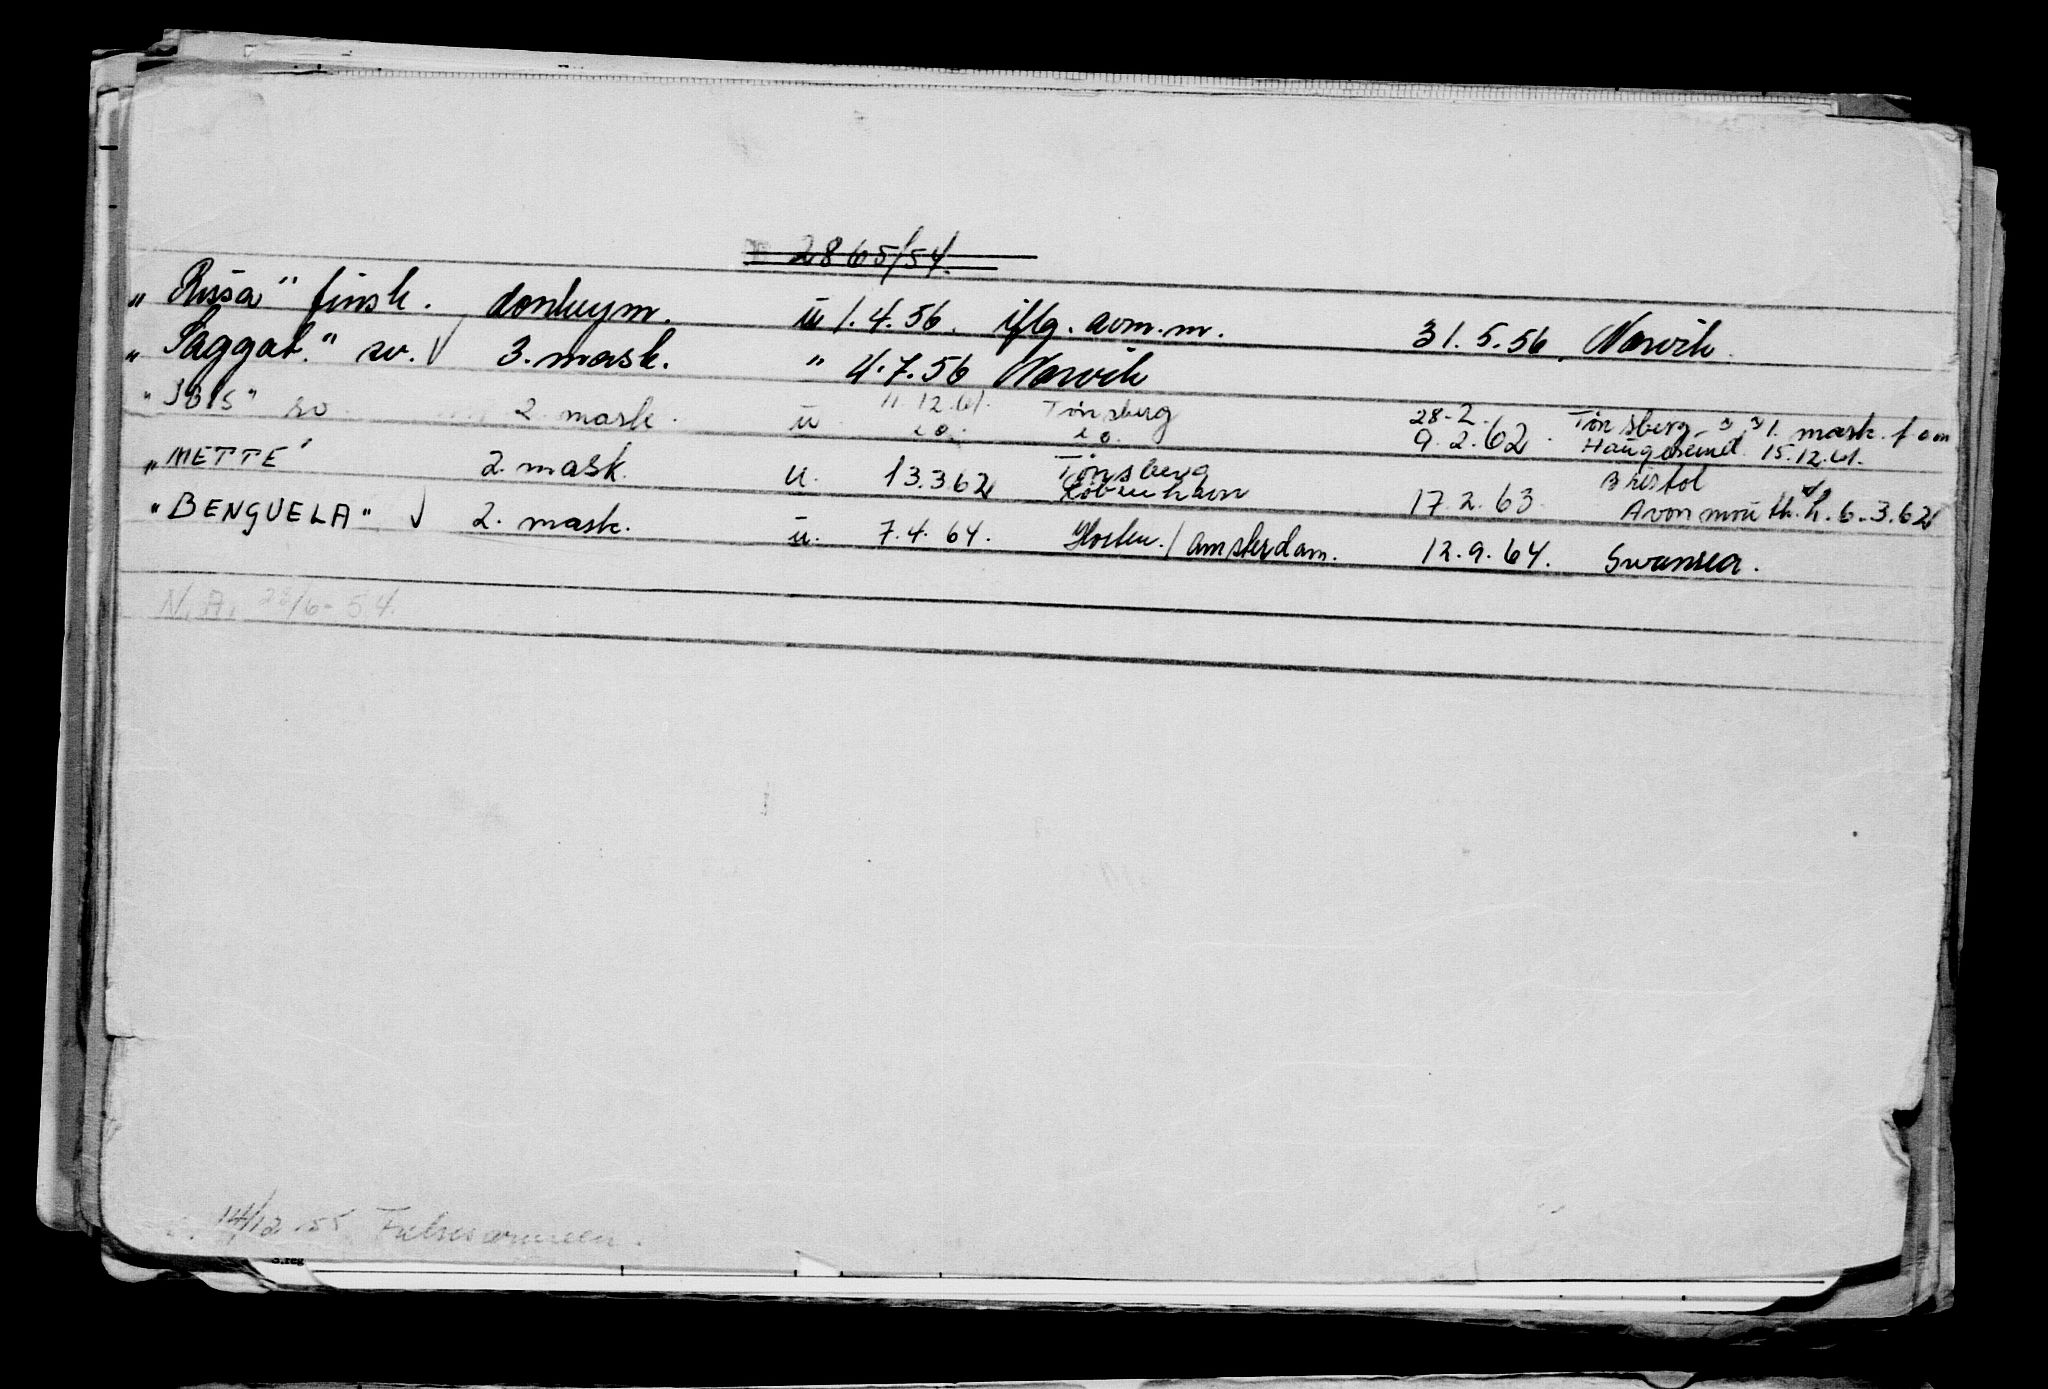 2865/54.
"Rissa" finsk. donkeym. u 1.4.56. iflg. avm.m. 31.5.56, Narvik.
"Saggat." sv. √ 3. mask. " 4.7.56 Narvik
"IBIS" so 2. mask. u 11.12.61. Tønsberg 28.2. Tønsberg 1. mask. f om
s.o. s.o. 9.2.62. Haugesund 15.12.61.
"METTE" 2. mask. u. 13.3.62 Tønsberg Bristol
København 17.2.63. Avonmouth. h. 6.3.62
"BENGUELA" √ 2. mask. u. 7.4.64. Horten./Amsterdam. 12.9.64. Swansea.
N.A. 28/6-54.
14/12.55
3.reg